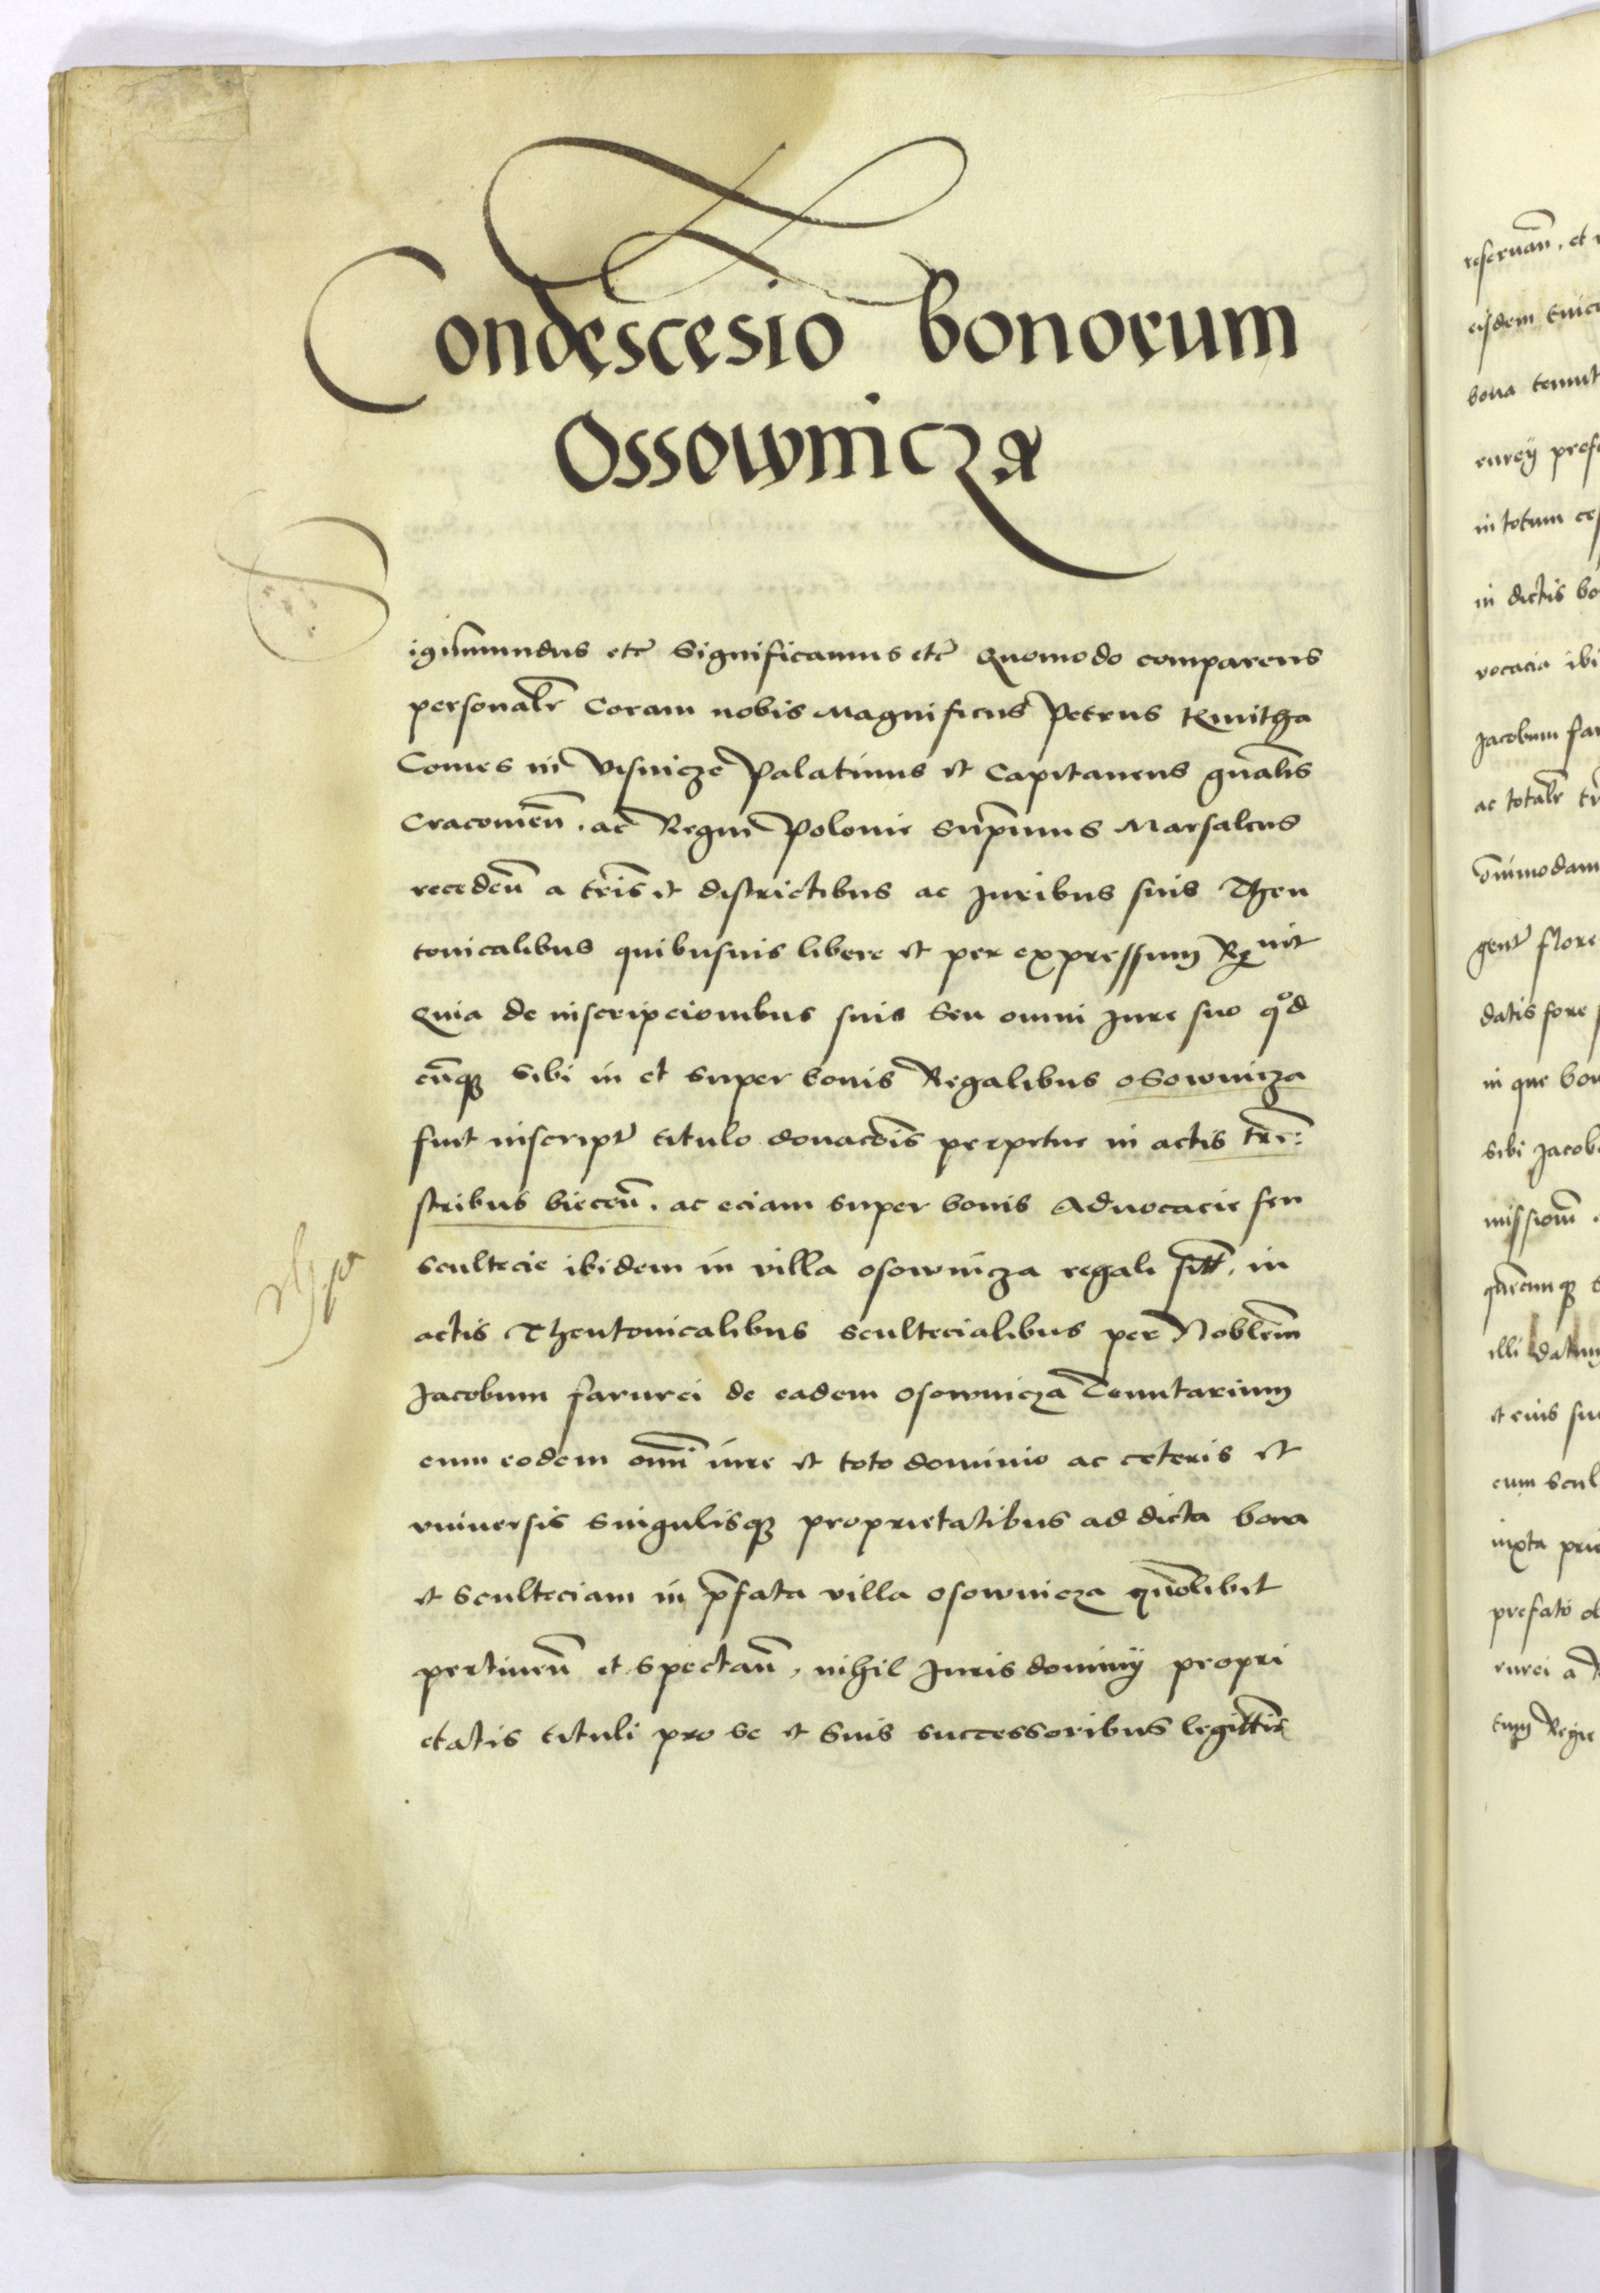 Condescesio bonorum
Ossownicza
Sigismundus etc̃ Significamus etc̃ Quomodo comparens
personalr̃ Coram nobis Magnificus Petrus Kmitha
Comes in Visnicze Palatinus et Capitaneus gn̄alis
Cracovieñ. ac Regni Polonie Supr̃mus Marsalcus
recedeñ a tr̃is et districtibus ac Juribus suis Theu
tonicalibus quibusuis libere et per expressum Rec uit
Quia de inscripcionibus suis seu omni Jure suo qͦd
cūq₃ Sibi in et super bonis Regalibus Osownicza
fuit inscript̃ titulo donacōis perpetue in actis trē:
stribus Bieceñ. ac eciam super bonis Aduocacie seu
scultecie ibidem in villa osownicza regali sitt̃. in
actis Theutonicalibus scultecialibus per Nobilem
Jacobum farurei de eadem osownicza Tenutarium
cum eodem om̄i iure et toto dominio ac ceteris et
vniuersis singulisq₃ proprietatibus ad dicta bona
et Sculteciam in p̃fata villa osownicza quōlibet
pertineñ et spectañ, nihil Juris dominij propri
etatis tituli pro se et suis successoribus legittĩs
reseruañ. et
eisdem
bona tenut
rurej prefa
in totum ces
in dictis bo
vocacia ibi
Jacobum far
ac totalr̃
om̃imodam
gent̃ flore
datis fore
in que bon
sibi Jacob
missioñ
qūecunq₃
illi datum
et eius su
cum scul
iuxta pri
prefato
rurei a
tum Regie